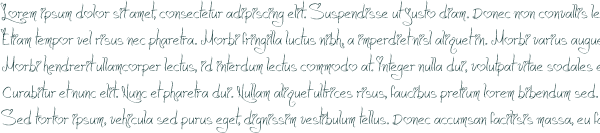 Lorem ipsum dolor sit amet, consectetur adipiscing elit. Suspendisse ut justo diam. Donec non convallis le
Etiam tempor vel risus nec pharetra. Morbi fringilla luctus nibh, a imperdiet nisl aliquet in. Morbi varius augue
Morbi hendrerit ullamcorper lectus, id interdum lectus commodo at. Integer nulla dui, volutpat vitae sodales e
Curabitur et nunc elit. Nunc et pharetra dui. Nullam aliquet ultrices risus, faucibus pretium lorem bibendum sed.
Sed tortor ipsum, vehicula sed purus eget, dignissim vestibulum tellus. Donec accumsan facilisis massa, eu fa